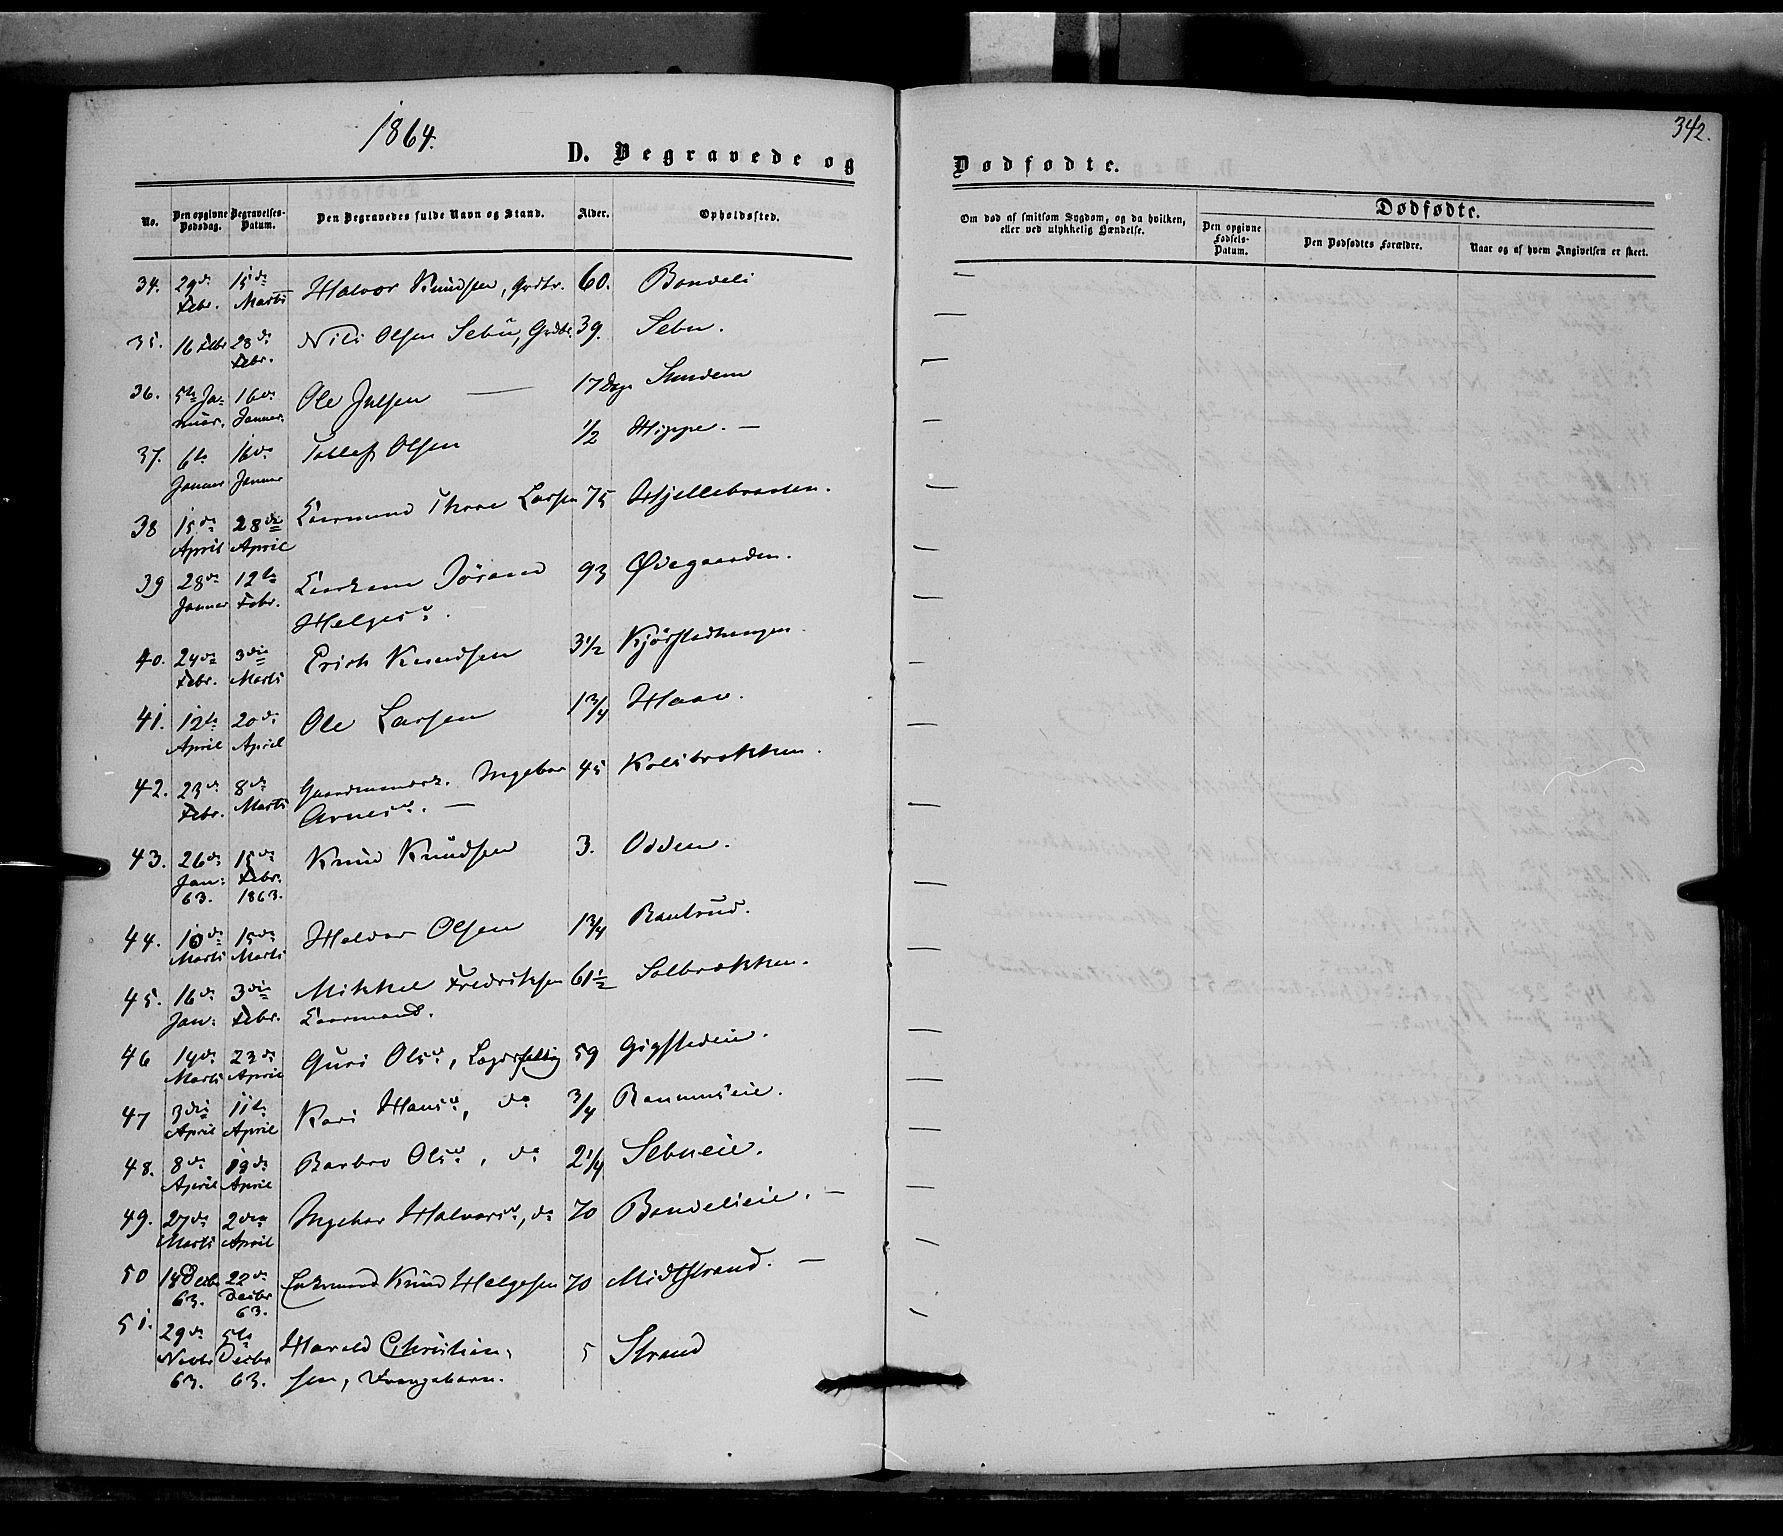 1864.
342.
D. Begravede og
Dødfødte.
No.
Den opgivne Dødsdag.
Begravelses-Datum.
Den Begravedes fulde Navn og Stand.
Alder.
Opholdssted.
Om død af smitsom Sygdom, og da hvilken, eller ved ulykkelig Hændelse.
Dødfødte.
Den opgivne Fødsels-Datum.
Den Dødfødtes Forældre.
Naar og af hvem Angivelsen er skeet.
34. 29de 15de Halvor Knudsen, 60. Bandeli
Febr. Marts
35. 16 Febr 28de Nils Olsen Sebu, 39. Sebu.
Febr.
36. 5te Ja- 16de Ole Julsen — 17 Dage
nuar. Januar.
37. 6te 16de Tollef Olsen 1/2 Hippe. —
Januar Januar
38 15de 28de Thore Larsen 75
April April
39 28de 12te 93 Ødegaarden.
Januar Febr. Helgesd.
40. 24de 3die Erich Knudsen 3 1/2
Febr. Marts
41. 12te 20de Ole Larsen 1 3/4 Haav.
April April
42. 23de 8de Ingebor 45 Kolsbrekken.
Febr. Marts Arnesd. —
43. 26de 15de Knud Knudsen 3. Odden.
Jan: Febr.
63. 1863.
44. 10de 15de Halvor Olsen 1 3/4
Marts Marts
45. 16de 3die Mikkel Fredriksen 61 1/2 Solbrekken.
Jan: Febr.
46 14de 23de Guri Olsd, 59 Gigstadeie.
Marts April
47 3die 11te Kari Hansd, do 3/4
April April
48. 8de 19de Barbro Olsd, do 2 1/4 Sebueie.
April April
49. 27de 2den Ingebor Halvorsd, do 70 Bandelieie. —
Marts April
50 14 Decbr 22de Knud Helgesen 70 Midtstrand. —
63. Decbr
63.
51. 29de 5te Harald Christian- 5 Strand
Novbr Decbr sen, Drengebarn.
63. 63.